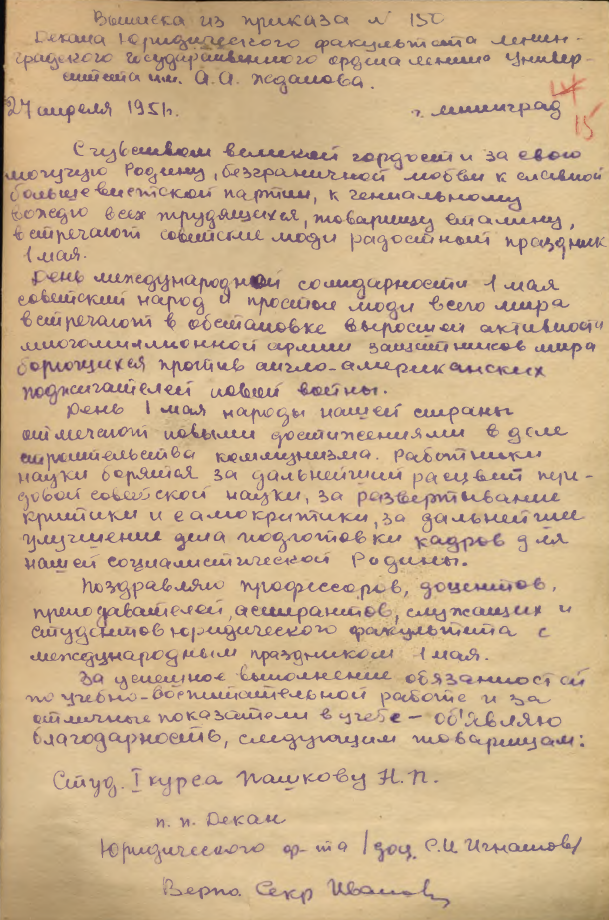 Выписка из приказа № 150
Декана Юридического факультета Ленин-
градского Государственного ордена Ленина Универ-
ситета им. А.А. Жданова.
27 апреля 1951г. г. Ленинград
14
15
С чувством великой гордости за свою
могучую Родину, безграничной любви к славной
большевистской партии, к гениальному
вождю всех трудящихся, товарищу Сталину,
встречают советские люди радостный праздник
1 мая.
День международной солидарности 1 мая
советский народ и простые люди всего мира
встречают в обстановке выросшей активности
многомиллионной армии защитников мира
борющихся против англо-американских
поджигателей новой войны.
День 1 мая народы нашей страны
отмечают новыми достижениями в деле
строительства коммунизма. Работники
науки борятся за дальнейший расцвет пере-
довой советской науки, за развертывание
критики и самокритики, за дальнейшее
улучшение дела подготовки кадров для
нашей социалистической Родины.
Поздравляю профессоров, доцентов,
преподавателей, аспирантов, служащих и
студентов юридического факультета с
международным праздником 1 мая.
За успешное выполнение обязанностей
по учебно-воспитательной работе и за
отличные показатели в учебе – об'являю
благодарность, следующим товарищам:
Студ. I курса Пашкову Н.П.
п.п. Декан
Юридического ф-та /доц. С.И. Игнатов/
Верно. Секр Иванов